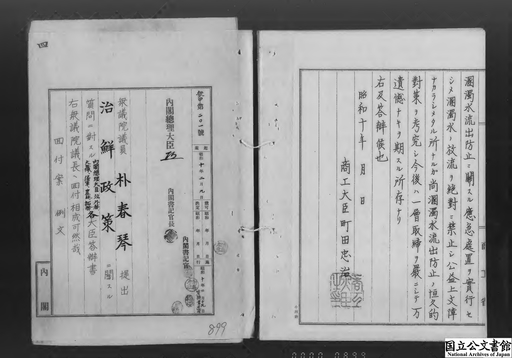 溷濁水流出防止ニ關スル應急處置ヲ實行セ
シメ溷濁水ノ放流ヲ絶對ニ禁止シ公益上支障
ナカラシメタル所ナルガ尚溷濁水流出防止ノ恒久的
對策ヲ考究シ今後ハ一層取締ヲ嚴ニシテ万
遺憾ナキヲ期スル所存ナリ
右及答辯候也
昭和十年 月 日
商工大臣町田忠治
四
内閣總理大臣
内閣書記官長
内閣書記官
衆議院議員 朴春琴 提出
治鮮政策ニ關スル
質問ニ對スル
各大臣答辯書
右衆議院議長ヘ回付相成可然哉
回付案 例文
内閣
899
国立公文書館
National Archives of Japan